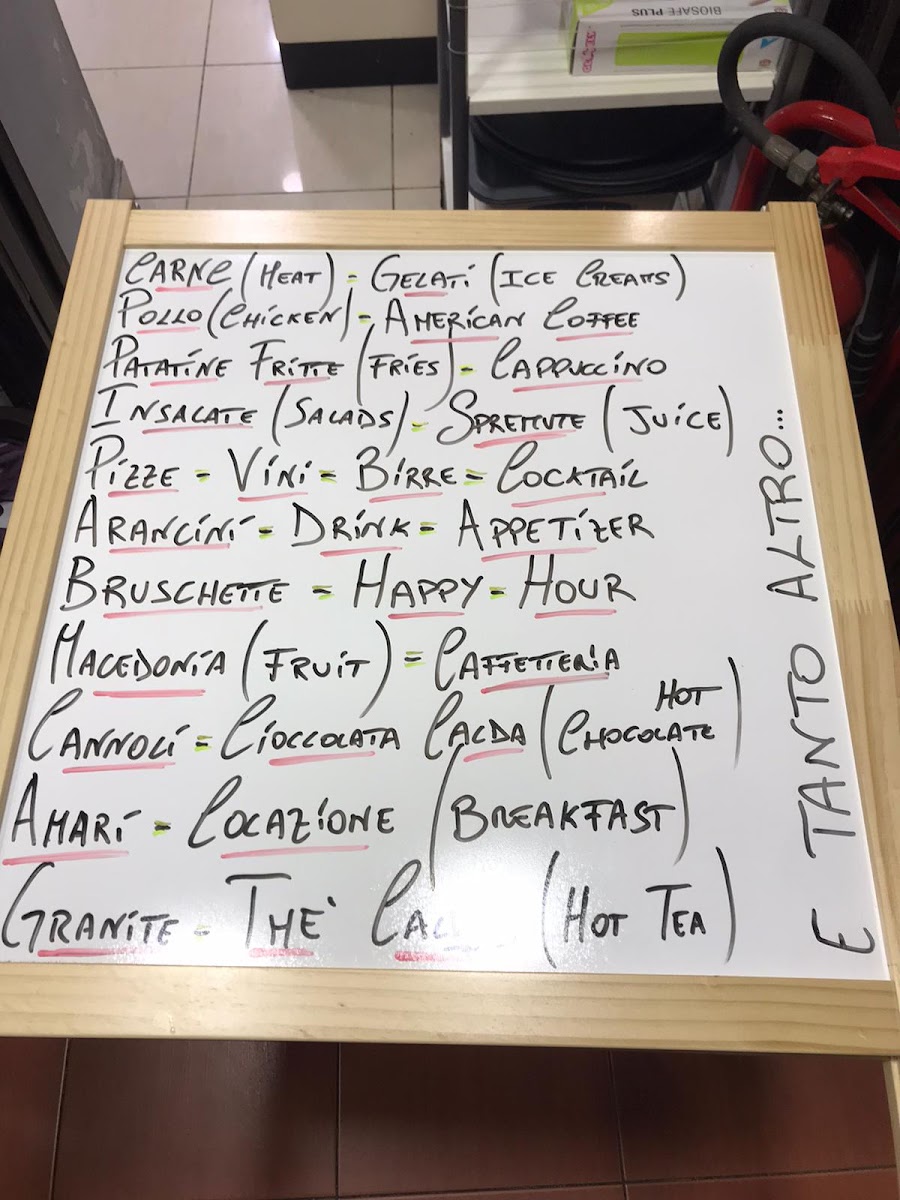 BIOSAFE PLUS
CARNE (MEAT) = GELATI (ICE CREAMS)
POLLO (CHICKEN) = AMERICAN COFFEE
PATATINE FRITTE (FRIES) = CAPPUCCINO
INSALATE (SALADS) = SPREMUTE (JUICE)
PIZZE = VINI = BIRRE = COCKTAIL
ARANCINI = DRINK = APPETIZER
BRUSCHETTE = HAPPY = HOUR
MACEDONIA (FRUIT) = CAFFETTERIA
CANNOLI = CIOCCOLATA CALDA (HOT CHOCOLATE)
AMARI = COLAZIONE (BREAKFAST)
GRANITE = THE' (HOT TEA)
E TANTO ALTRO...